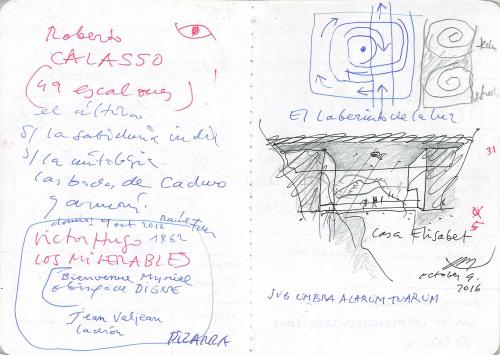 Roberto
CALASSO
(49 escalones)!
el último
s/ la sabiduría india
s/ la mitología
las bodas de Cadmo
y armoni.
9 oct 2016
Victor Hugo 1862
LOS MISERABLES
Bienvenue Myriel
obispo de DIGNE
Jean Valjean
ladrón
PIZARRA
El Laberinto de la luz
31
Casa Elisabet
october 9.
2016
SUB UMBRA ALARUM TUARUM